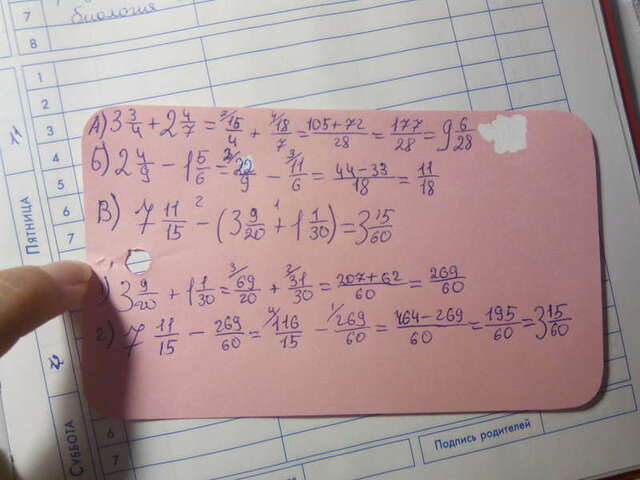 7
биология
8
1
2
3
4
5
6
7
ПЯТНИЦА
А) 3 3/4 + 2 4/7 = 7/15/4 + 4/18/7 = 105+72/28 = 177/28 = 9 6/28
Б) 2 4/9 - 1 5/6 = 2/22/9 - 3/11/6 = 44-33/18 = 11/18
В) 7 11/15 - (3 9/20 + 1 1/30) = 3 15/60
1) 3 9/20 + 1 1/30 = 3/69/20 + 2/31/30 = 207+62/60 = 269/60
2) 7 11/15 - 269/60 = 4/116/15 - 1/269/60 = 464-269/60 = 195/60 = 3 15/60
СУББОТА
6
7
Подпись родителей